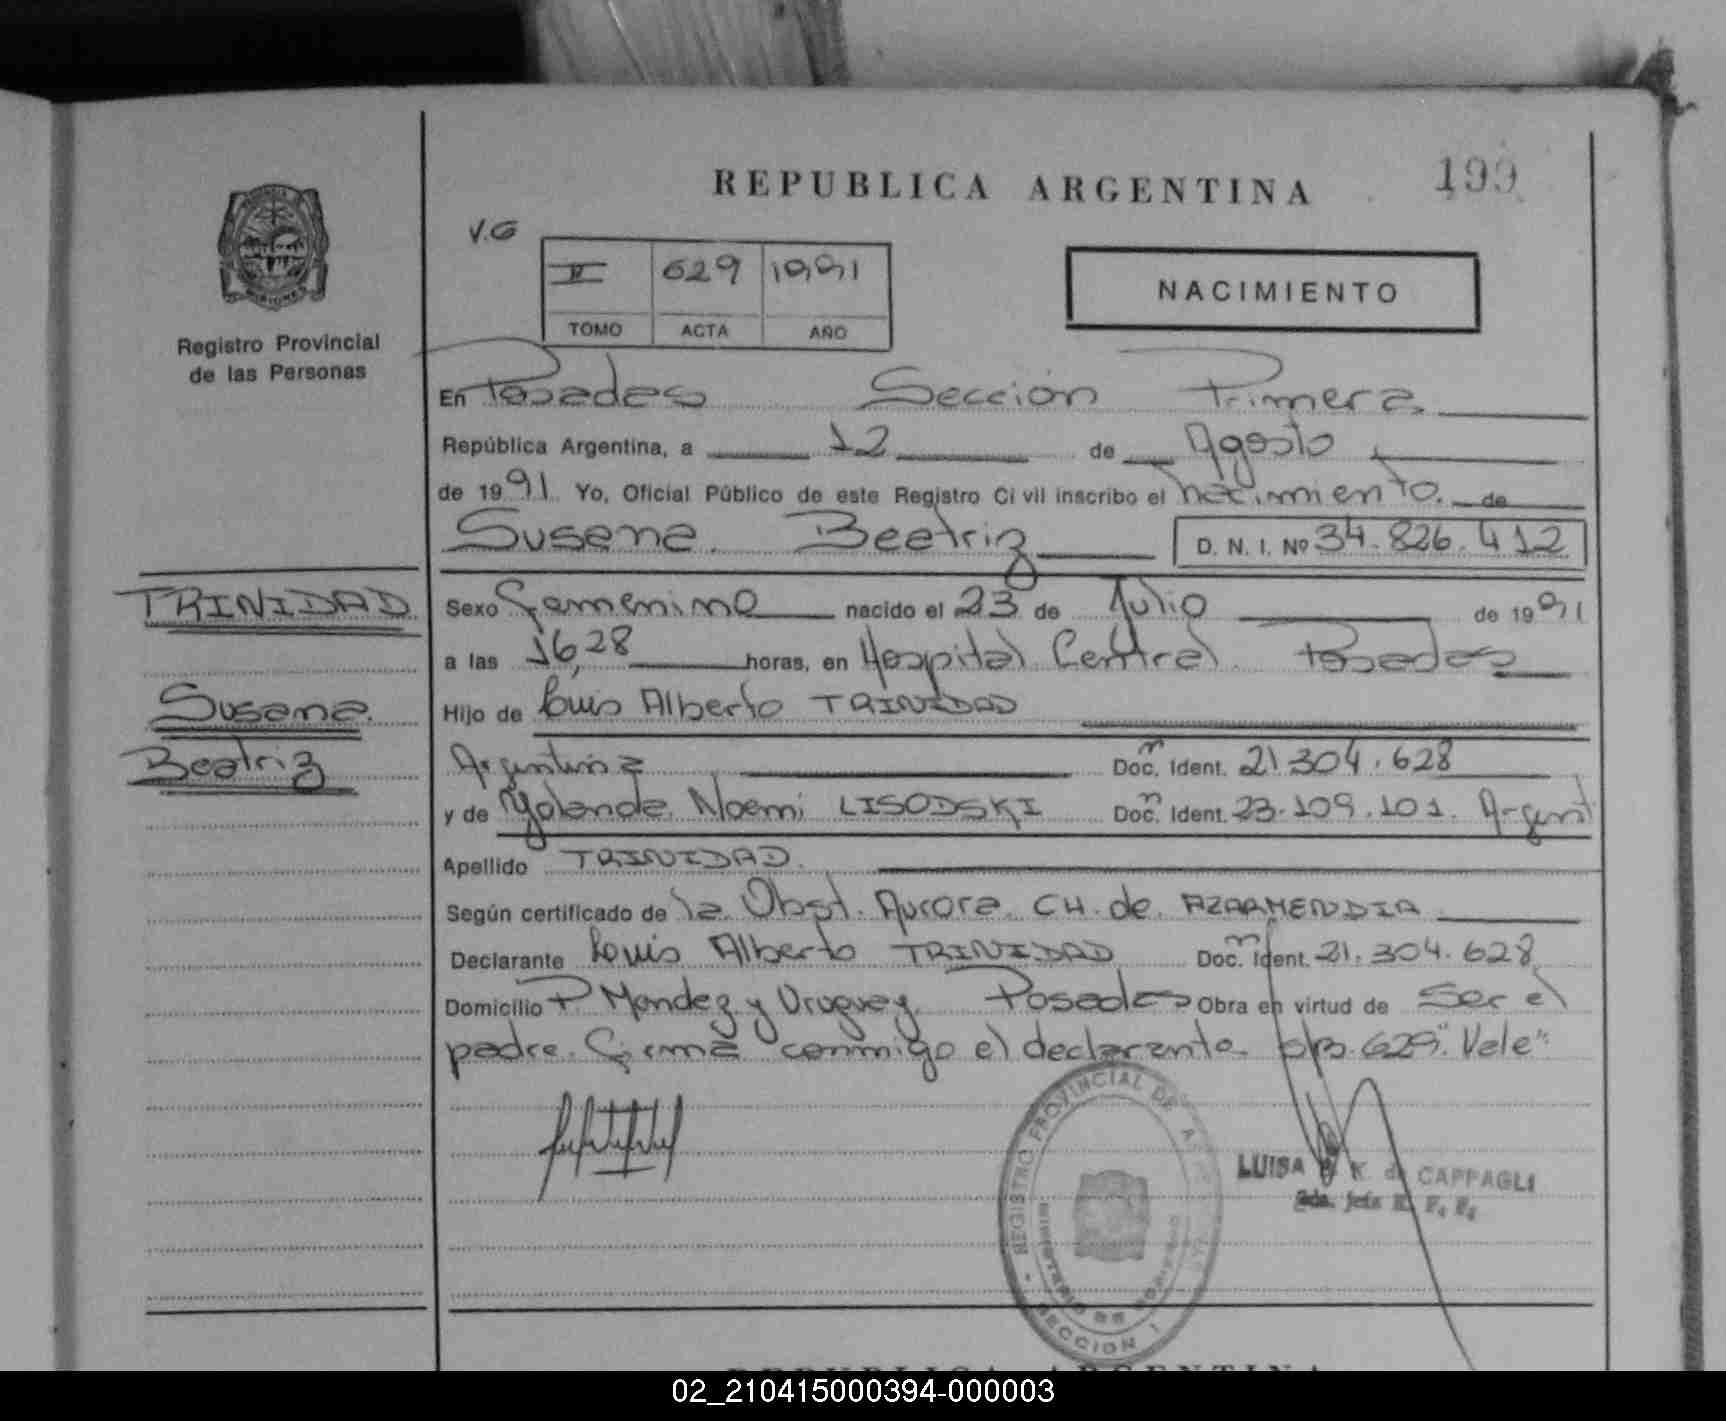 REPUBLICA ARGENTINA 199
V.G
II 629 1991
TOMO ACTA AÑO
NACIMIENTO
PROVINCIA
MISIONES
Registro Provincial
de las Personas
En Posadas Sección Primera
República Argentina, a 12 de Agosto
de 1991 Yo, Oficial Público de este Registro Civil inscribo el nacimiento. de
Susana Beatriz D. N. I. Nº 34.826.412
TRINIDAD
Susana
Beatriz
Sexo Femenino nacido el 23 de Julio de 1991
a las 16,28 horas, en Hospital Central Posadas
Hijo de Luis Alberto TRINIDAD
Argentina Doc. Ident. 21.304.628
y de Yolanda Noemi LISODSKI Doc. Ident. 23.109.101. Argent
Apellido TRINIDAD.
Según certificado de la Obst. Aurora CH. de AZARMENDIA
Declarante Luis Alberto TRINIDAD Doc. Ident. 21.304.628
Domicilio P. Mendez y Uruguay Posadas Obra en virtud de ser el
padre. Firma conmigo el declarante. S/B. 629. "Vale"
REGISTRO PROVINCIAL DE
SECCION 1
LUISA K. de CAPPAGLI
REPUBLICA ARGENTINA
02_210415000394-000003